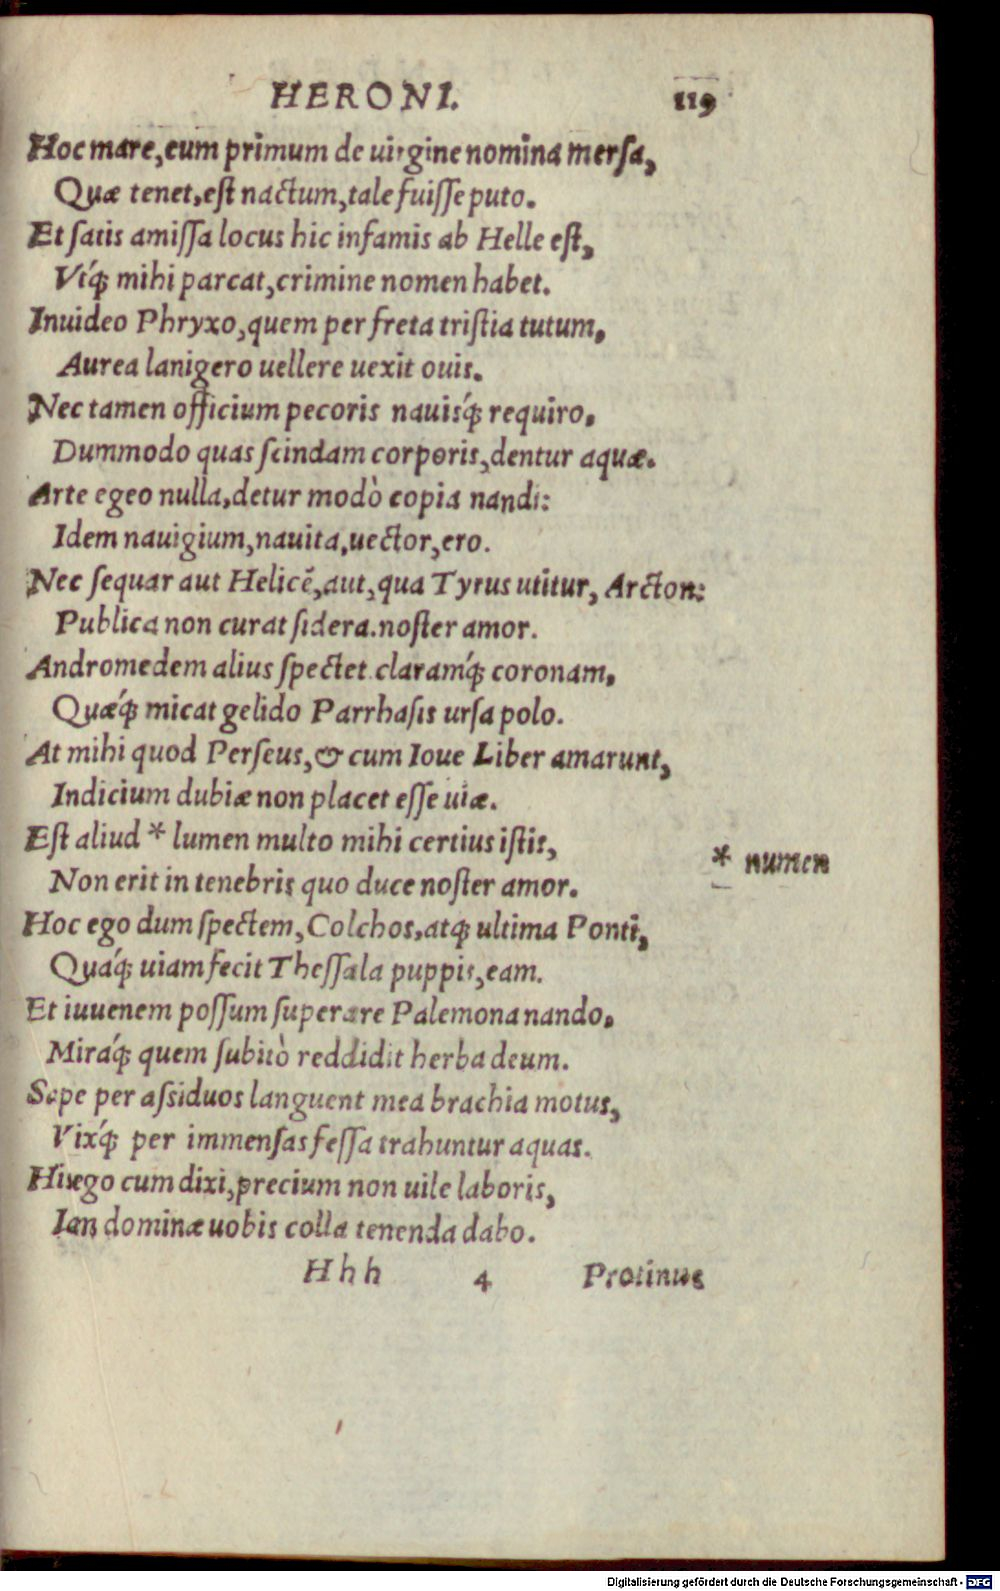 HERONI. 119
Hoc mare, cum primum de uirgine nomina mersa,
Quæ tenet, est nactum, tale fuisse puto.
Et satis amissa locus hic infamis ab Helle est,
Vtq́; mihi parcat, crimine nomen habet.
Inuideo Phryxo, quem per freta tristia tutum,
Aurea lanigero uellere uexit ouis.
Nec tamen officium pecoris nauisq́; requiro,
Dummodo quas scindam corporis, dentur aquæ.
Arte egeo nulla, detur modò copia nandi:
Idem nauigium, nauita, uector, ero.
Nec sequar aut Helicē, aut, qua Tyrus utitur, Arcton:
Publica non curat sidera. noster amor.
Andromedem alius spectet claramq́; coronam,
Quæq́; micat gelido Parrhasis ursa polo.
At mihi quod Perseus, & cum Ioue Liber amarunt,
Indicium dubiæ non placet esse uiæ.
Est aliud * lumen multo mihi certius istis,
* numen
Non erit in tenebris quo duce noster amor.
Hoc ego dum spectem, Colchos, atq; ultima Ponti,
Quáq; uiam fecit Thessala puppis, eam.
Et iuuenem possum superare Palemona nando,
Miráq; quem subitò reddidit herba deum.
Sepe per assiduos languent mea brachia motus,
Vixq́; per immensas fessa trahuntur aquas.
His ego cum dixi, precium non uile laboris,
Ian dominæ uobis colla tenenda dabo.
Hhh 4 Protinus
Digitalisierung gefördert durch die Deutsche Forschungsgemeinschaft - DFG